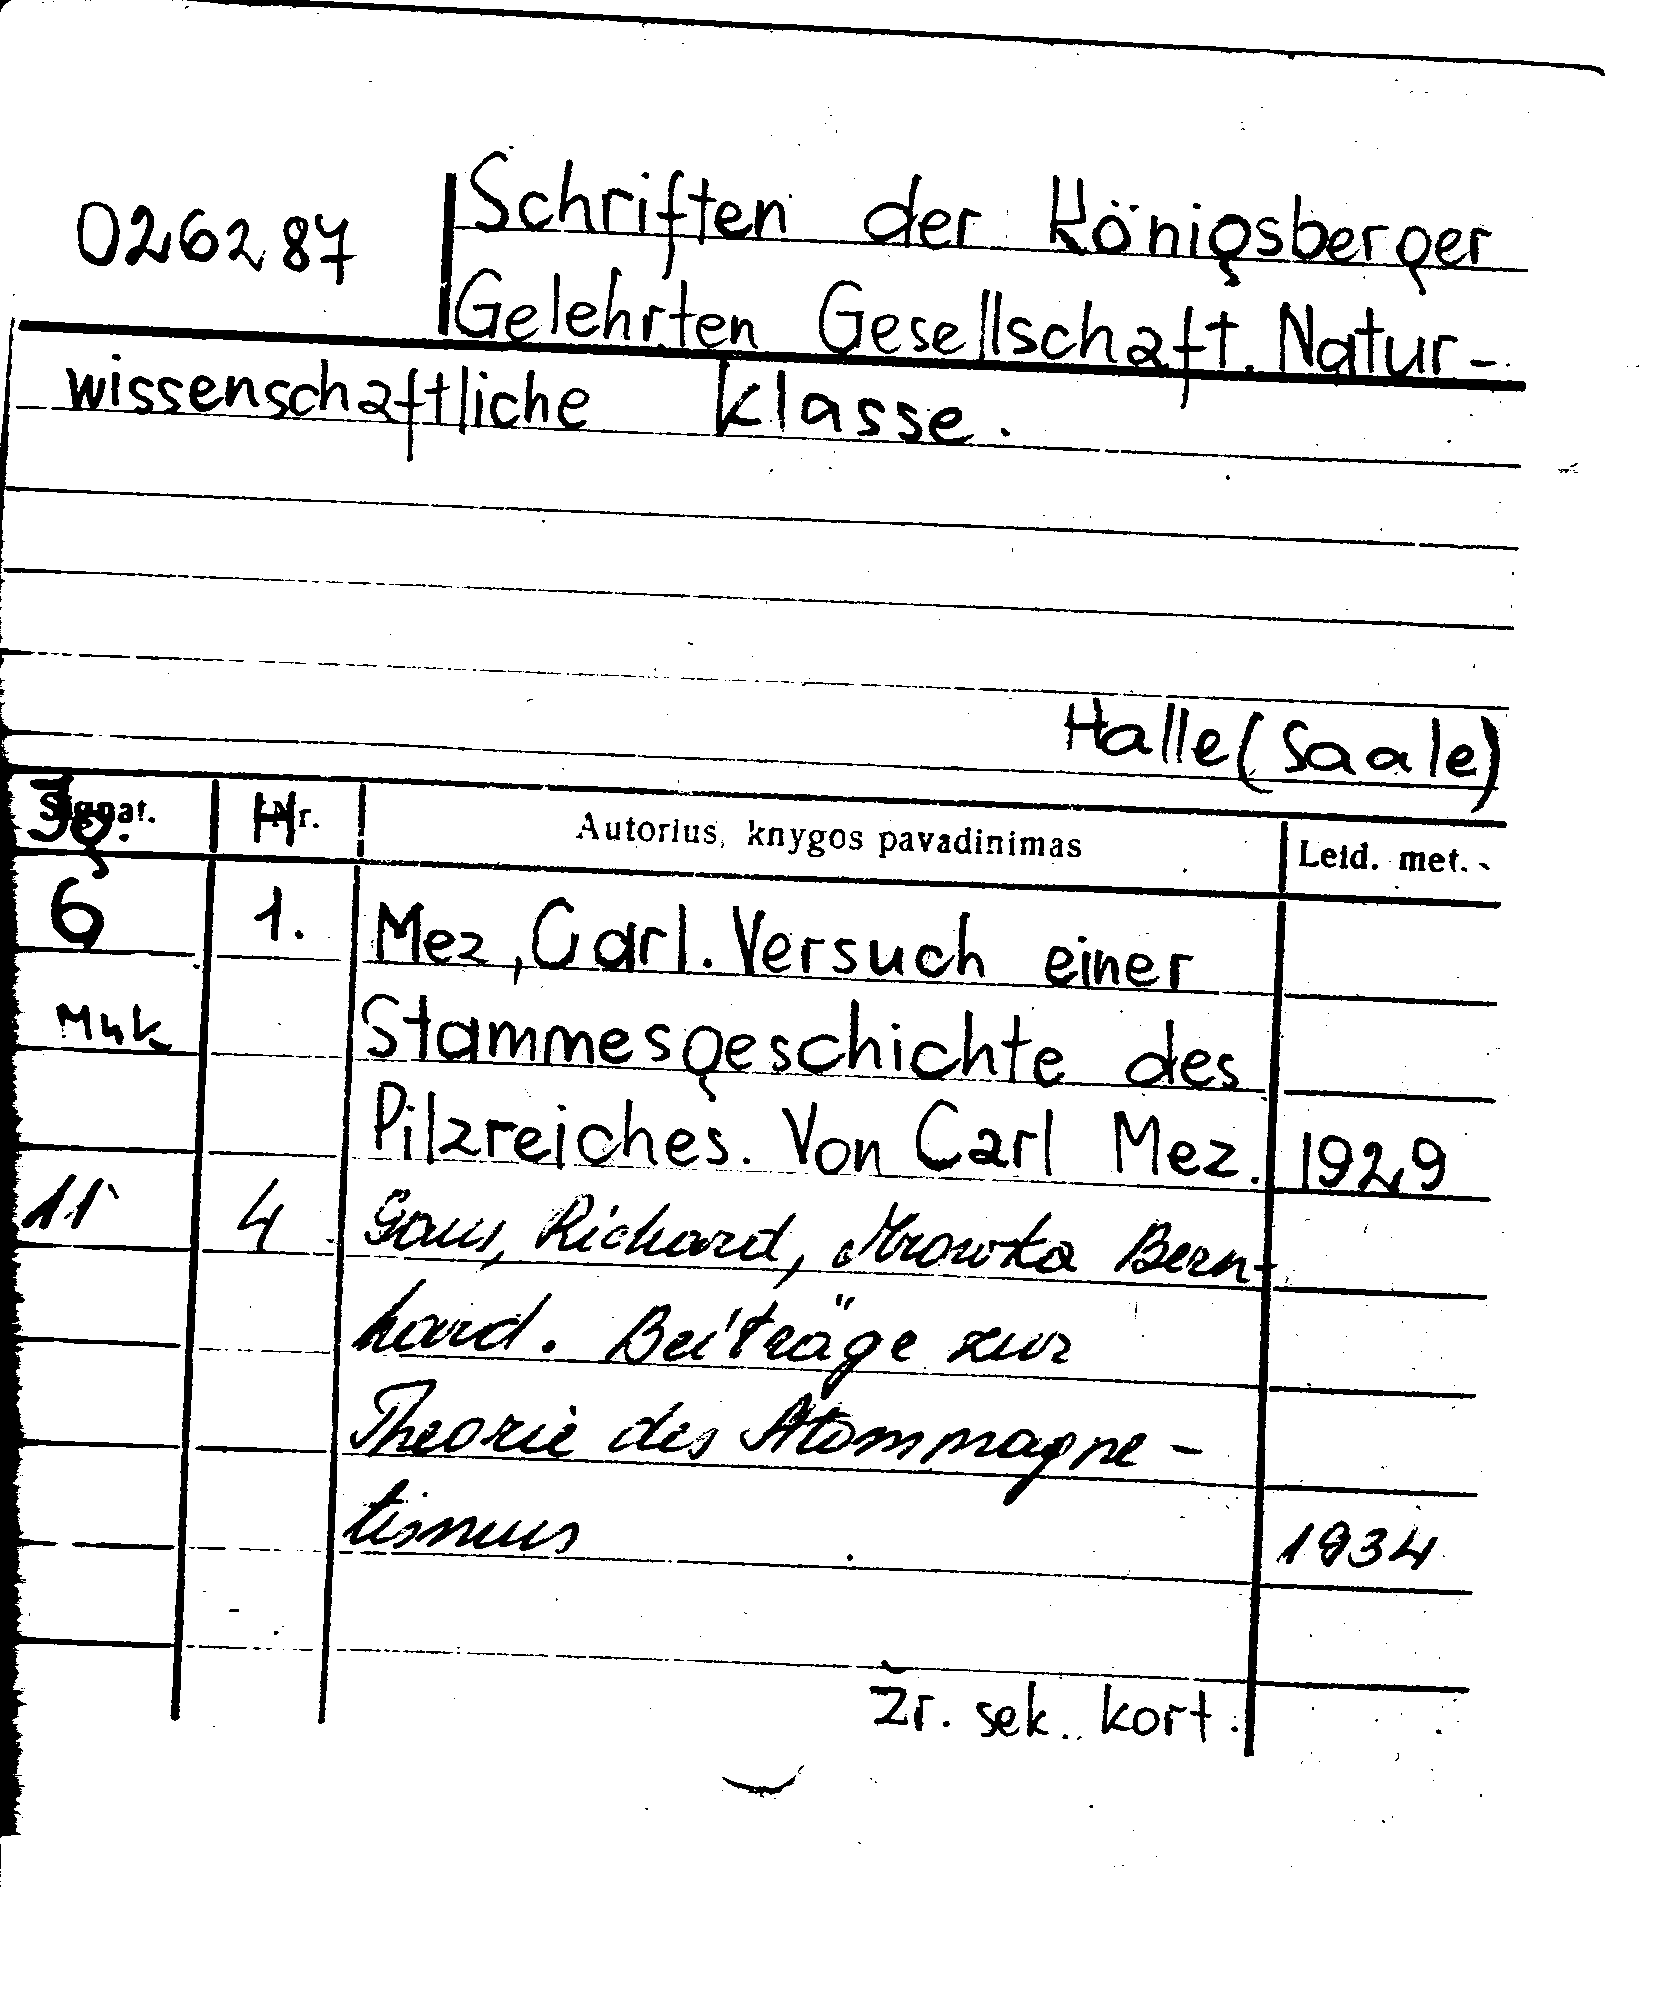 026287 Schriften der Königsberger
Gelehrten Gesellschaft. Natur-
wissenschaftliche Klasse.
Halle (Saale)
Signat. Nr. Autorius, knygos pavadinimas Leid. met.
Jg. H
6 1. Mez, Carl. Versuch einer
Stammesgeschichte des
Pilzreiches. Von Carl Mez. 1929
11 4 Gans, Richard, Mrowka Bern-
hard. Beiträge zur
Theorie des Atommagne-
tismus 1934
Žr. sek. kort.